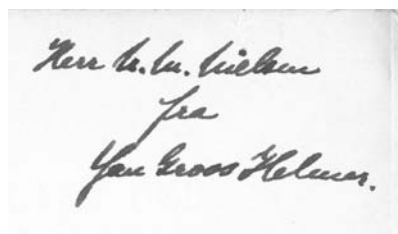 Herr N. M. Nielsen
fra
Jan Gross Helmer.